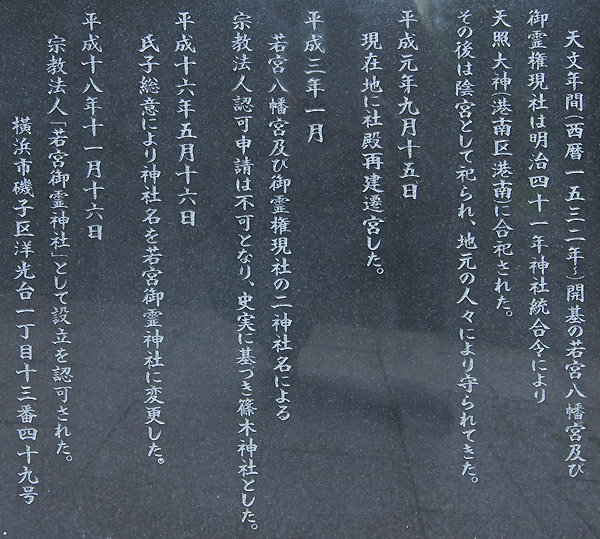 天文年間(西暦一五三二年~)開基の若宮八幡宮及び
御霊権現社は明治四十一年神社統合令により
天照大神(港南区港南)に合祀された。
その後は陰宮として祀られ、地元の人々により守られてきた。
平成元年九月十五日
現在地に社殿再建遷宮した。
平成三年一月
若宮八幡宮及び御霊権現社の二神社名による
宗教法人認可申請は不可となり、史実に基づき篠木神社とした。
平成十六年五月十六日
氏子総意により神社名を若宮御霊神社に変更した。
平成十八年十一月十六日
宗教法人「若宮御霊神社」として設立を認可された。
横浜市磯子区洋光台一丁目十三番四十九号